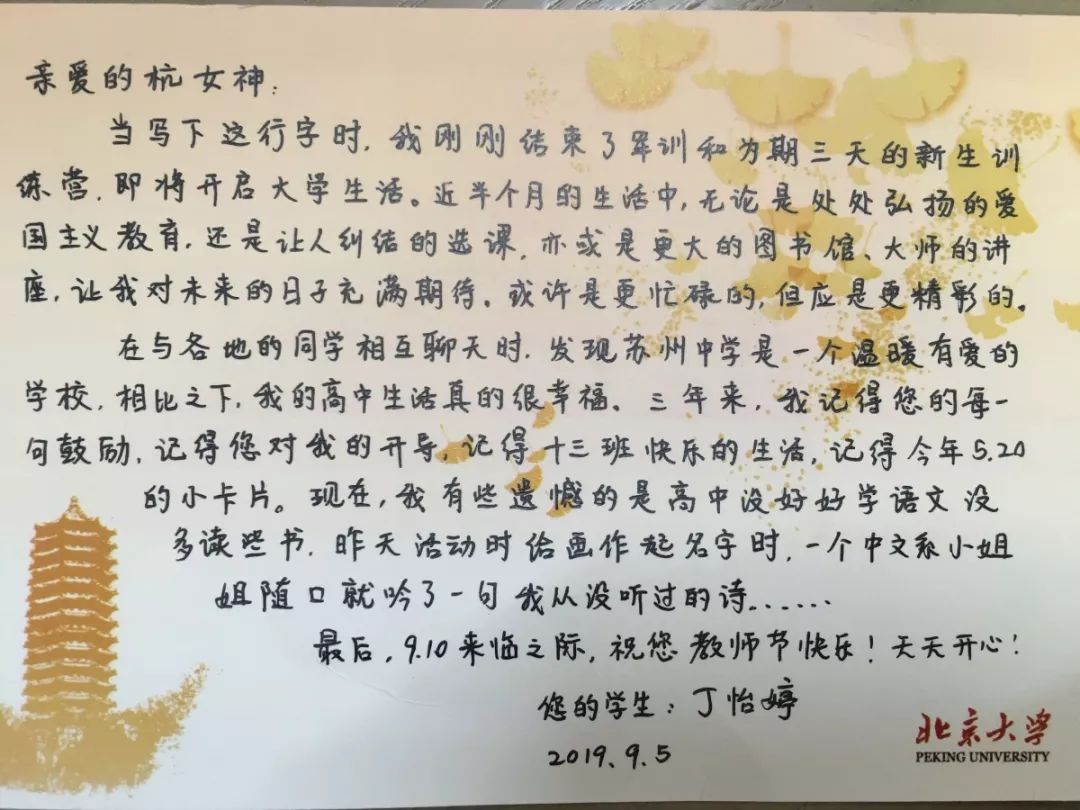 亲爱的杭女神：
当写下这行字时，我刚刚结束了军训和为期三天的新生训
练营，即将开启大学生活。近半个月的生活中，无论是处处弘扬的爱
国主义教育，还是让人纠结的选课，亦或是更大的图书馆、大师的讲
座，让我对未来的日子充满期待。或许是更忙碌的，但应是更精彩的。
在与各地的同学相互聊天时，发现苏州中学是一个温暖有爱的
学校，相比之下，我的高中生活真的很幸福。三年来，我记得您的每一
句鼓励，记得您对我的开导，记得十三班快乐的生活，记得今年5.20
的小卡片。现在，我有些遗憾的是高中没好好学语文没
多读些书，昨天活动时给画作起名字时，一个中文系小姐
姐随口就吟了一句我从没听过的诗......
最后，9.10来临之际，祝您教师节快乐！天天开心！
您的学生：丁怡婷
2019.9.5
北京大学
PEKING UNIVERSITY